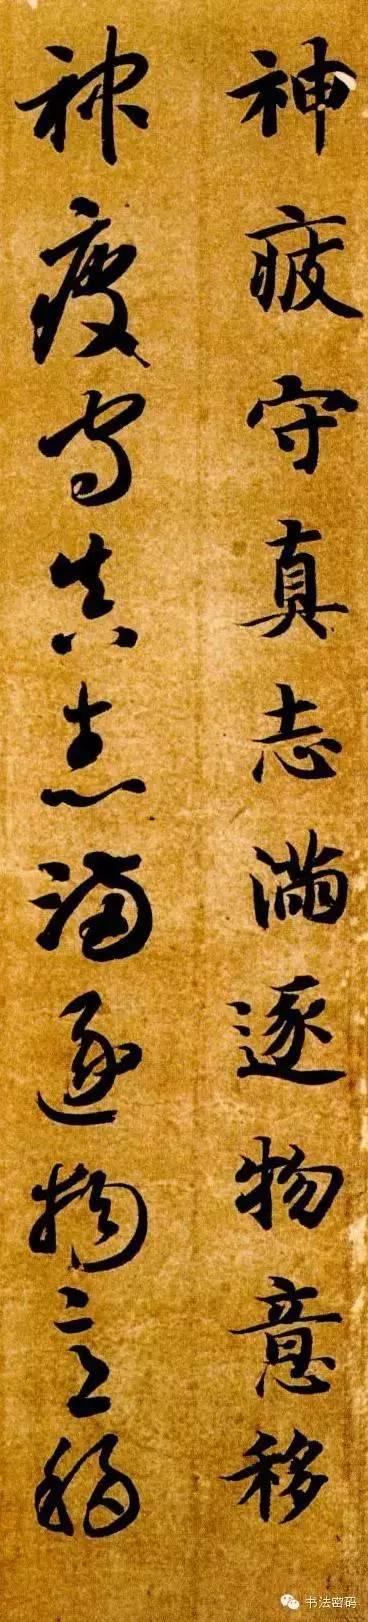 神疲守真志滿逐物意移
神疲守真志滿逐物意移
书法密码